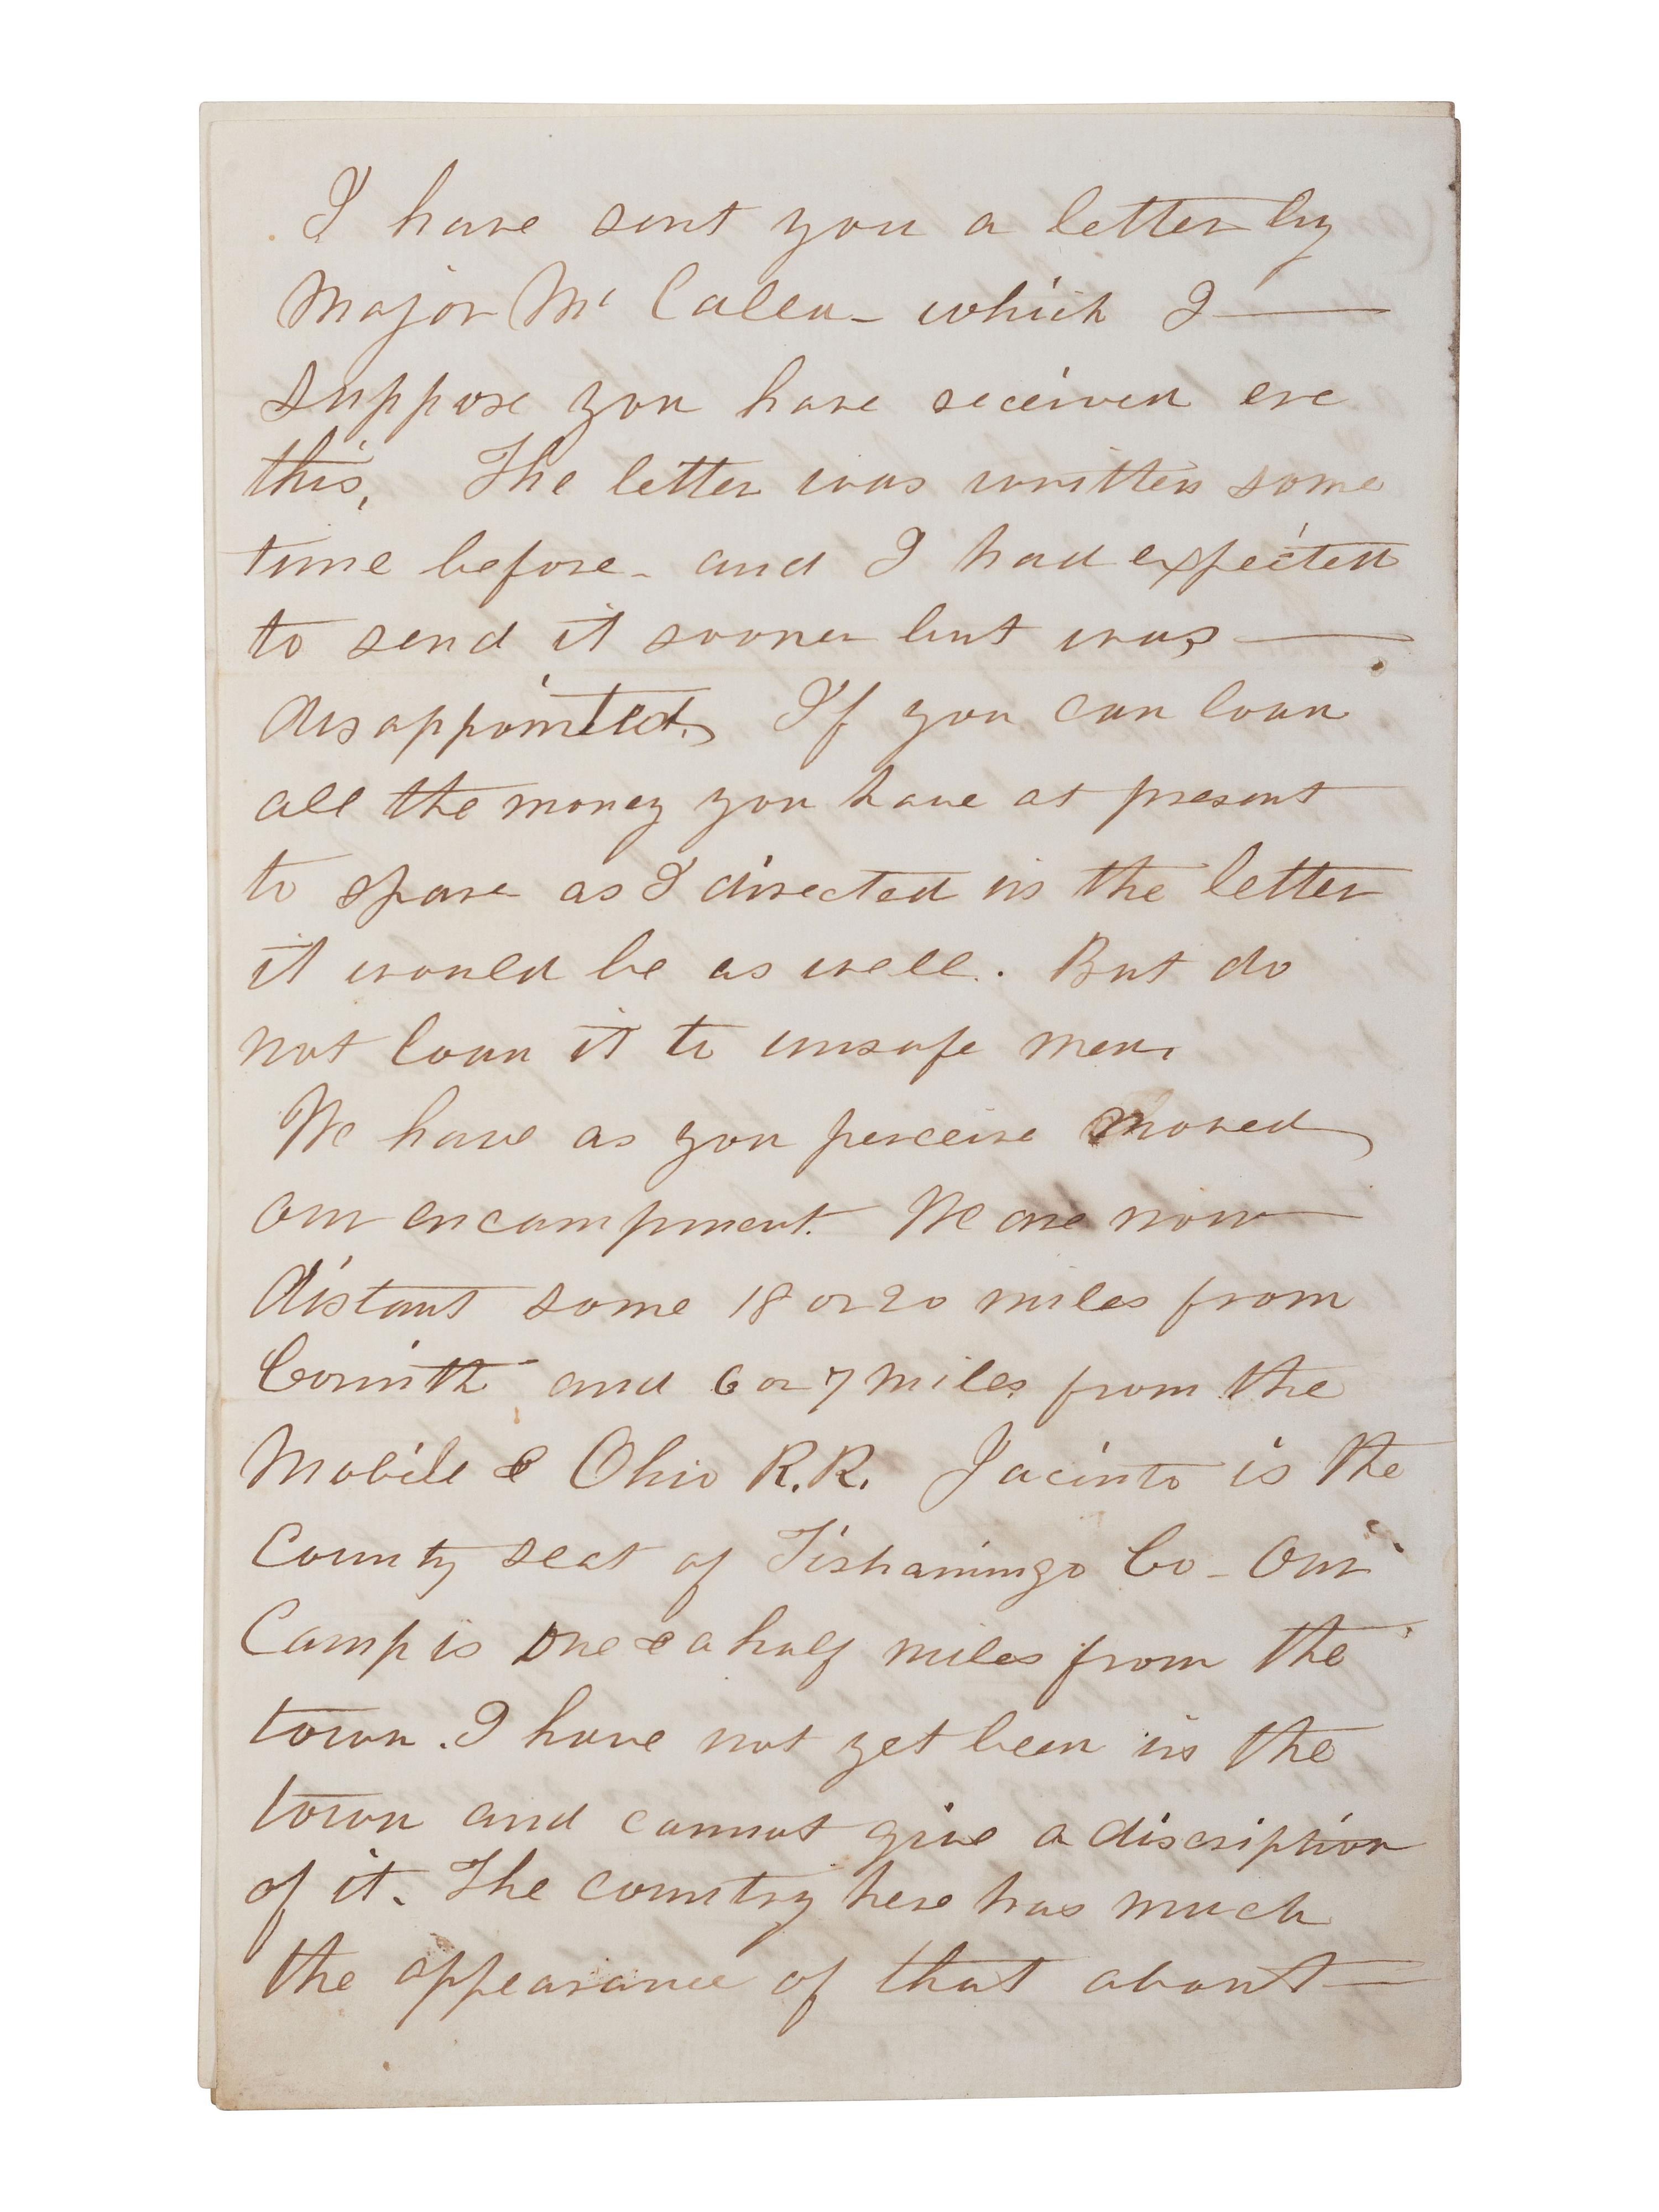 I have sent you a letter by
Major Mc Calla - which I —
suppose you have received ere
this, The letter was written some
time before - and I had expected
to send it sooner but was —
disappointed. If you can loan
all the money you have at present
to spare as I directed in the letter
it would be as well. But do
not loan it to unsafe men.
We have as you perceive moved
our encampment. We are now
distant some 18 or 20 miles from
Corinth and 6 or 7 miles from the
Mobile & Ohio R.R. Jacinto is the
County seat of Tishamingo Co - Our
Camp is one & a half miles from the
town. I have not yet been in the
town and cannot give a discription
of it. The country here has much
the appearance of that about —